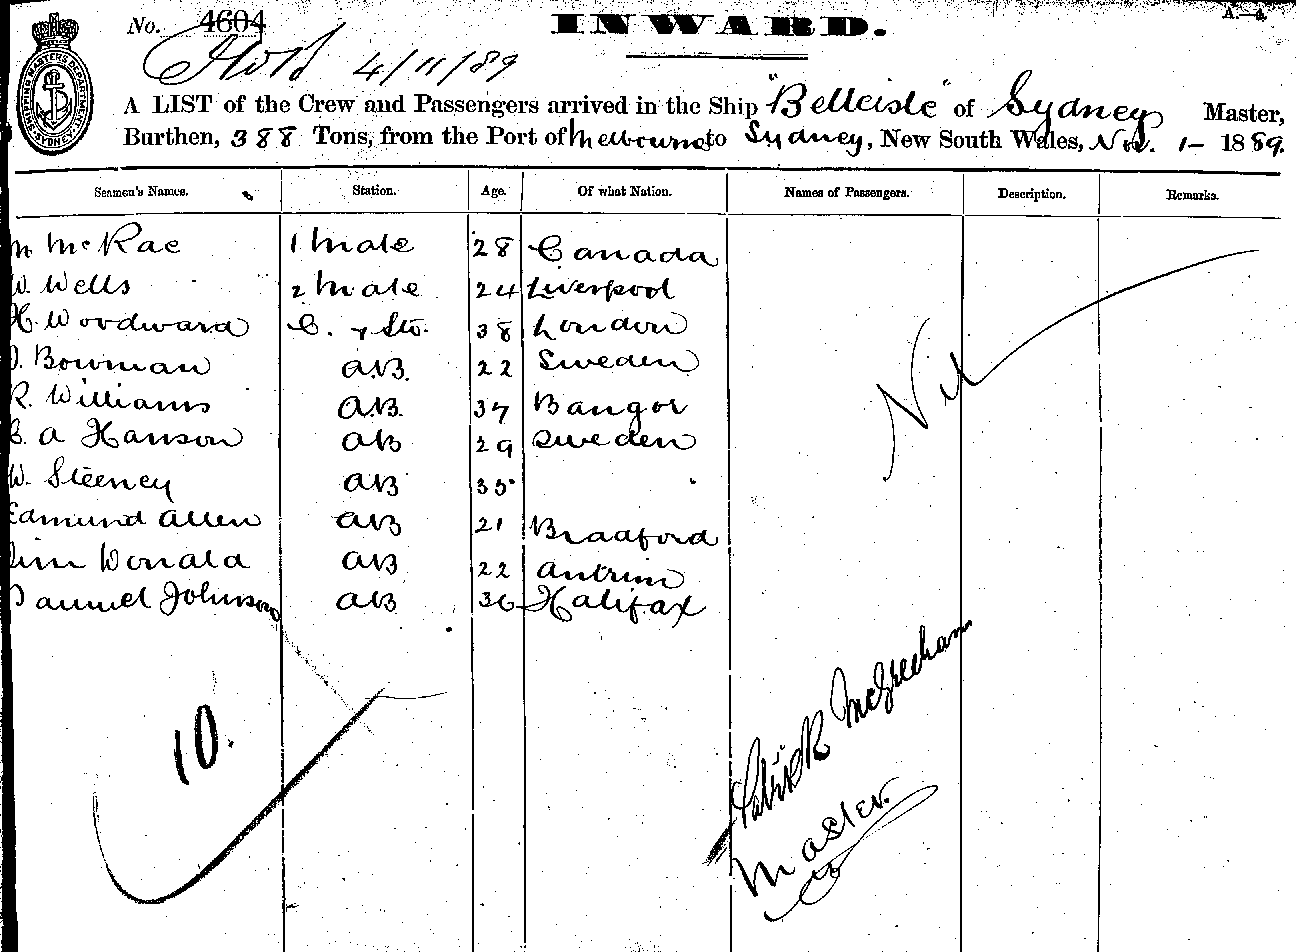 No. 4604 INWARD. A.—4.
4/11/89
A LIST of the Crew and Passengers arrived in the Ship "Belleisle" of Sydney Master,
Burthen, 388 Tons, from the Port of Melbourne to Sydney, New South Wales, Nov. 1- 1889.
Seamen's Names. Station. Age. Of what Nation. Names of Passengers. Description. Remarks.
M McRae 1 Mate 28 Canada
W. Wells 2 Mate 24 Liverpool
H. Woodward C. & Stw. 38 London
Bowman A.B. 22 Sweden
R. Williams A.B. 37 Bangor
A Hanson AB 29 Sweden
W. Steeney AB 35
Edmund Allen AB 21 Bradford
Donald AB 22 Antrim
Samuel Johnson AB 36 Halifax
Nil
10.
Patrick McGreeham
Master.
SHIPPING MASTERS DEPARTMENT SYDNEY